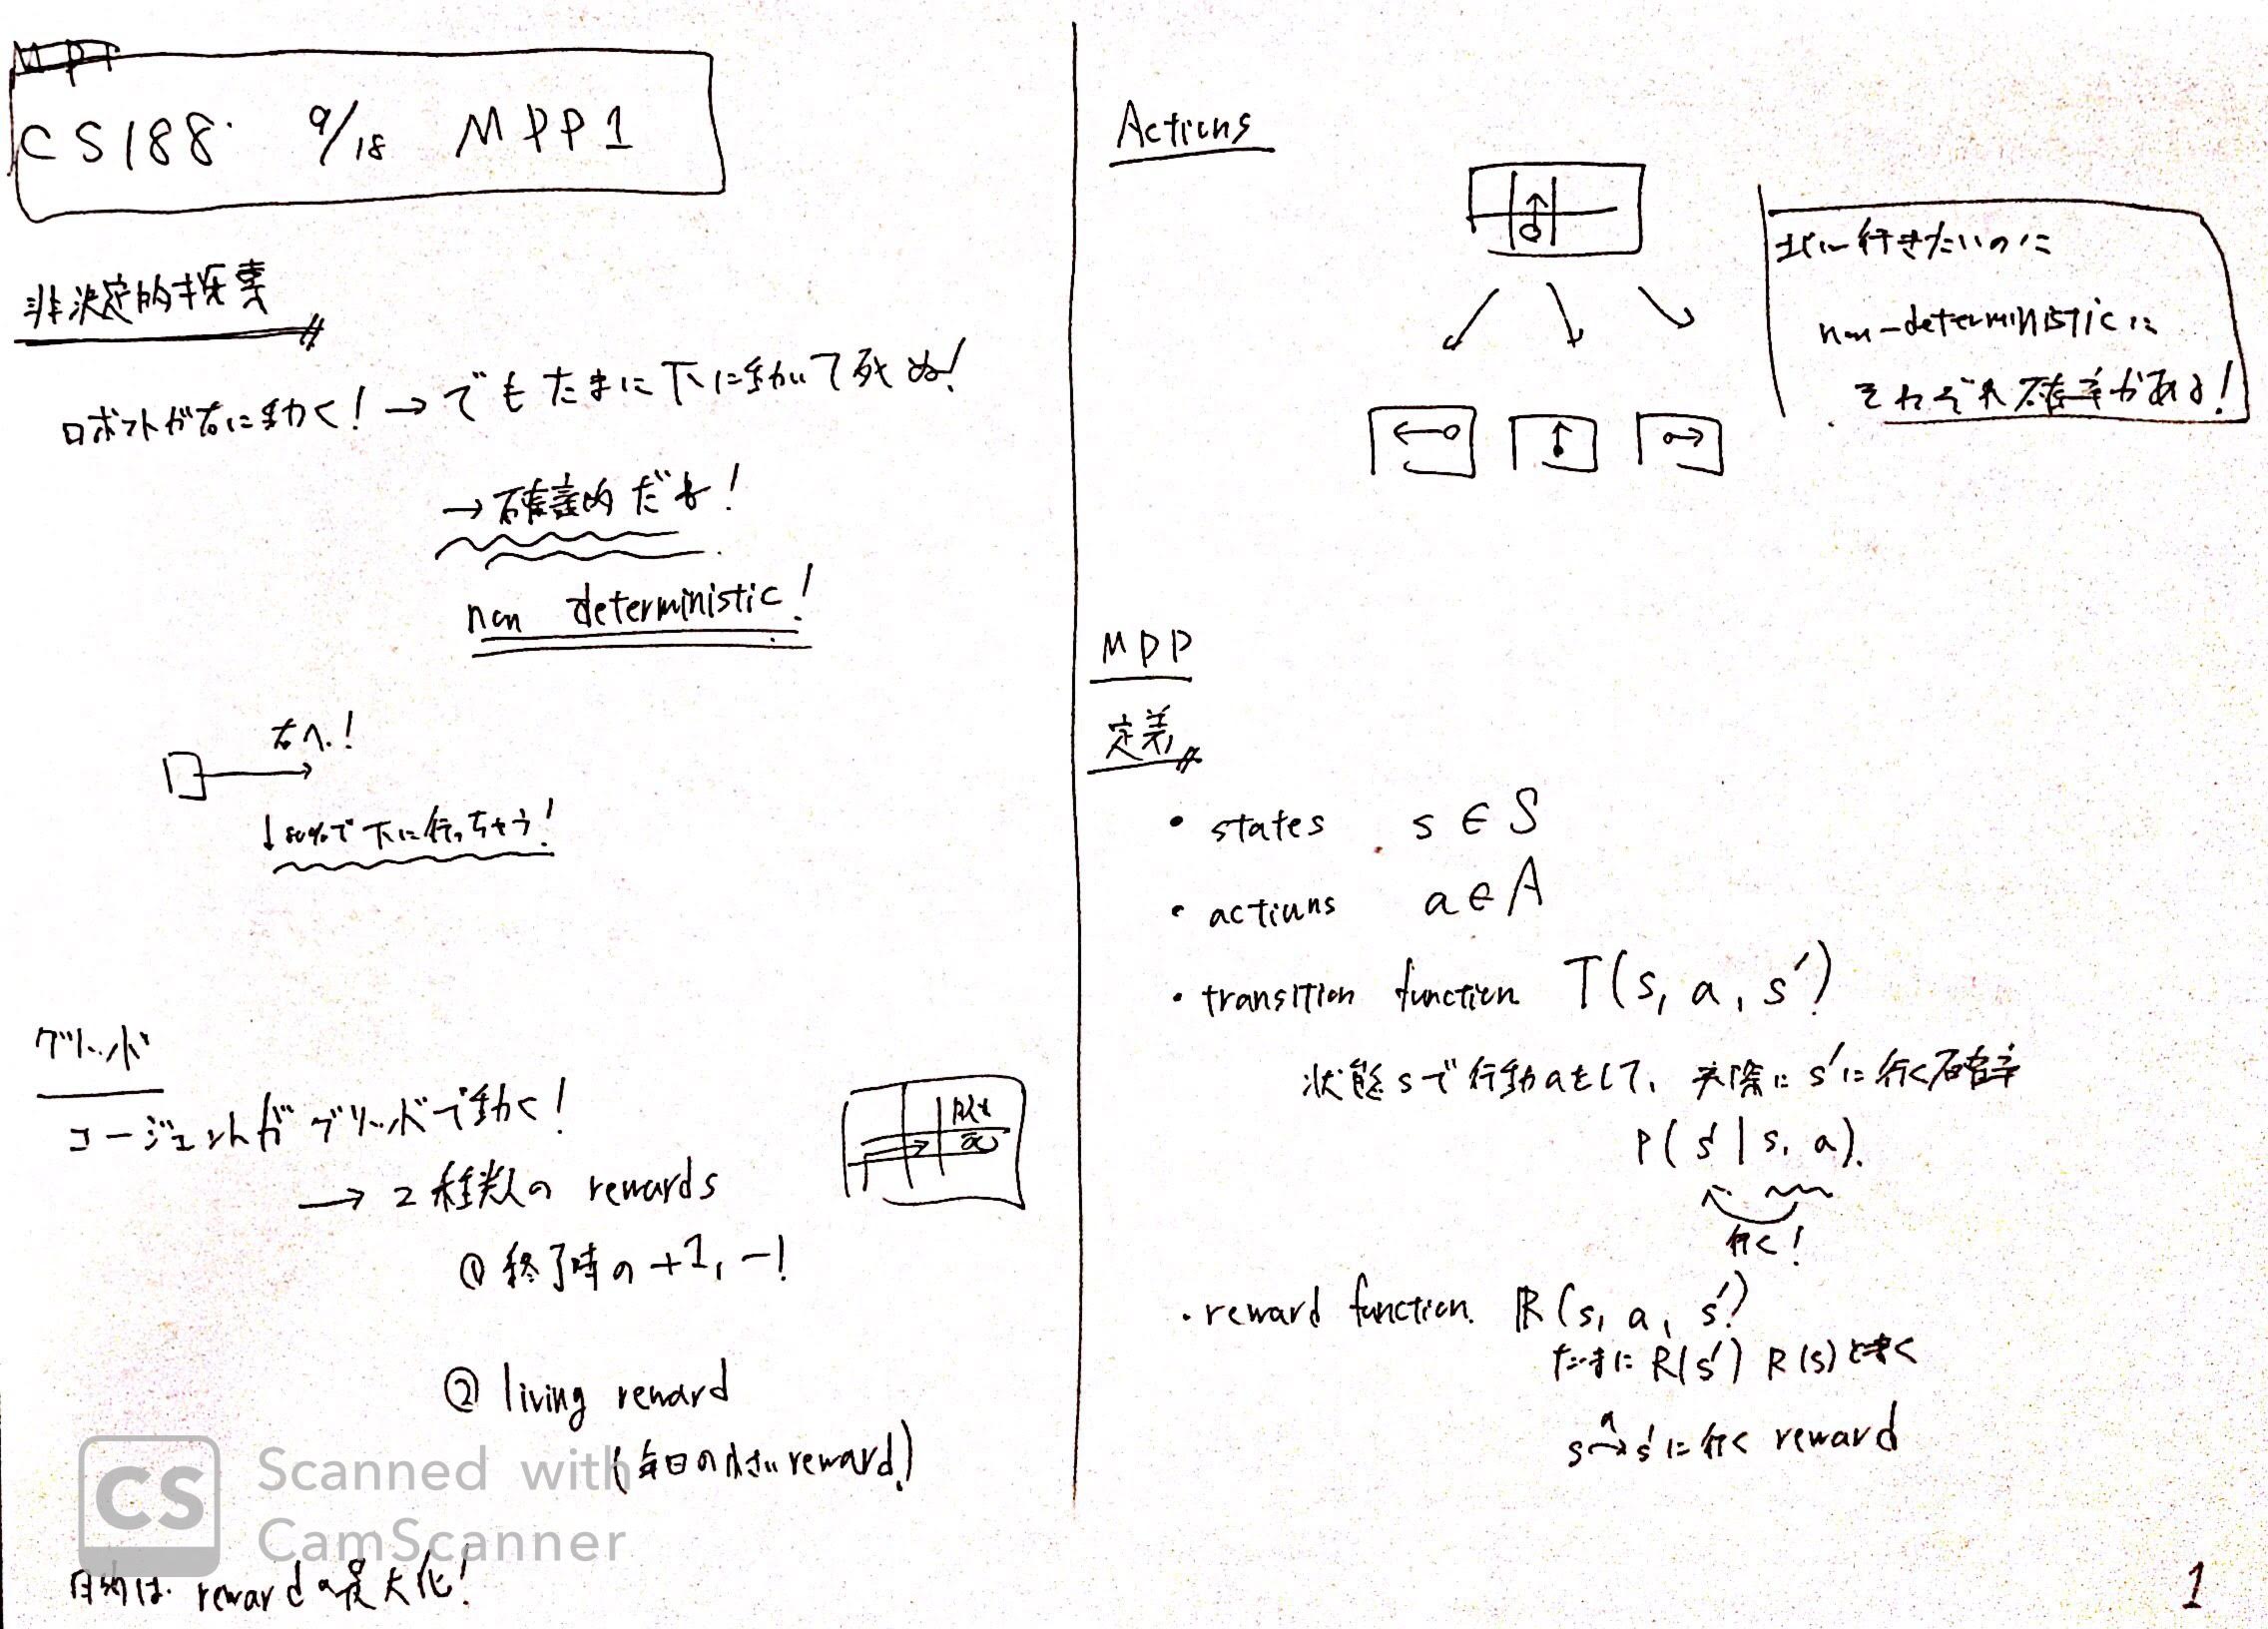 CS188 9/18 MDP1
非決定的探索
ロボットが右に動く! → でもたまに下に動いて死ぬ!
→ 確率的だね!
non deterministic!
右へ!
↓80%で下に行っちゃう!
グリッド
エージェントがグリッドで動く!
→ 2種類の rewards
① 終了時の +1, -1
② living reward
(毎日の小さい reward)
目的は reward の最大化!
Actions
北に行きたいのに
non-deterministicに
それぞれ確率がある!
MDP
定義
• states s ∈ S
• actions a ∈ A
• transition function T(s, a, s')
状態sで行動aをして、実際に s'に行く確率
P(s' | s, a).
行く!
• reward function. R(s, a, s')
たまに R(s') R(s) と書く
s a→ s'に行く reward
1
Scanned with
CamScanner
CS